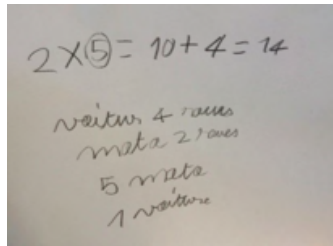 2 × 5 = 10 + 4 = 14
voiture 4 roues
moto 2 roues
5 moto
1 voiture